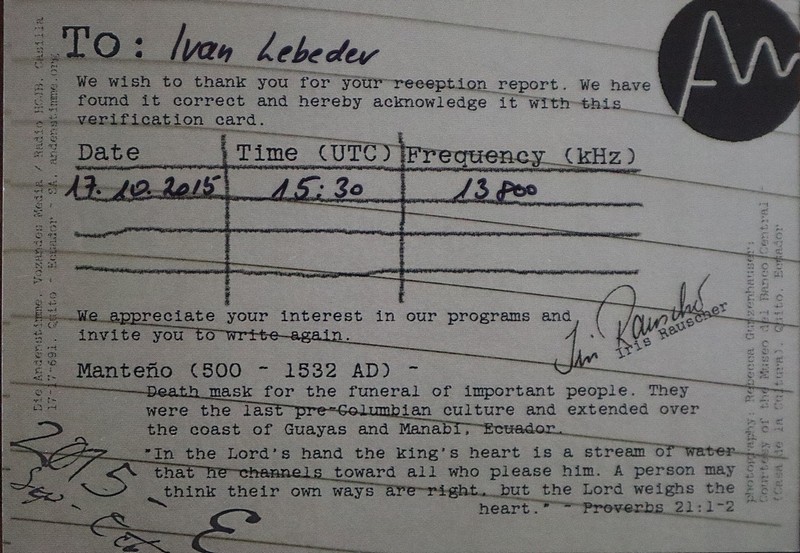 To: Ivan Lebedev
We wish to thank you for your reception report. We have
found it correct and hereby acknowledge it with this
verification card.
Date Time (UTC) Frequency (kHz)
17.10.2015 15:30 13800
We appreciate your interest in our programs and
invite you to write again.
Iris Rauscher
Iris Rauscher
Manteño (500 - 1532 AD) -
Death mask for the funeral of important people. They
were the last pre-Columbian culture and extended over
the coast of Guayas and Manabí, Ecuador.
"In the Lord's hand the king's heart is a stream of water
that he channels toward all who please him. A person may
think their own ways are right, but the Lord weighs the
heart." - Proverbs 21:1-2
2015-
E
Die Andenstimme, Vozandes Media / Radio HCJB, Casilla
17-17-691, Quito - Ecuador - SA, andenstimme.org
photography: Rebecca Gunzenhauser:
Courtesy of the Museo del Banco Central -
(Casa de la Cultura), Quito, Ecuador